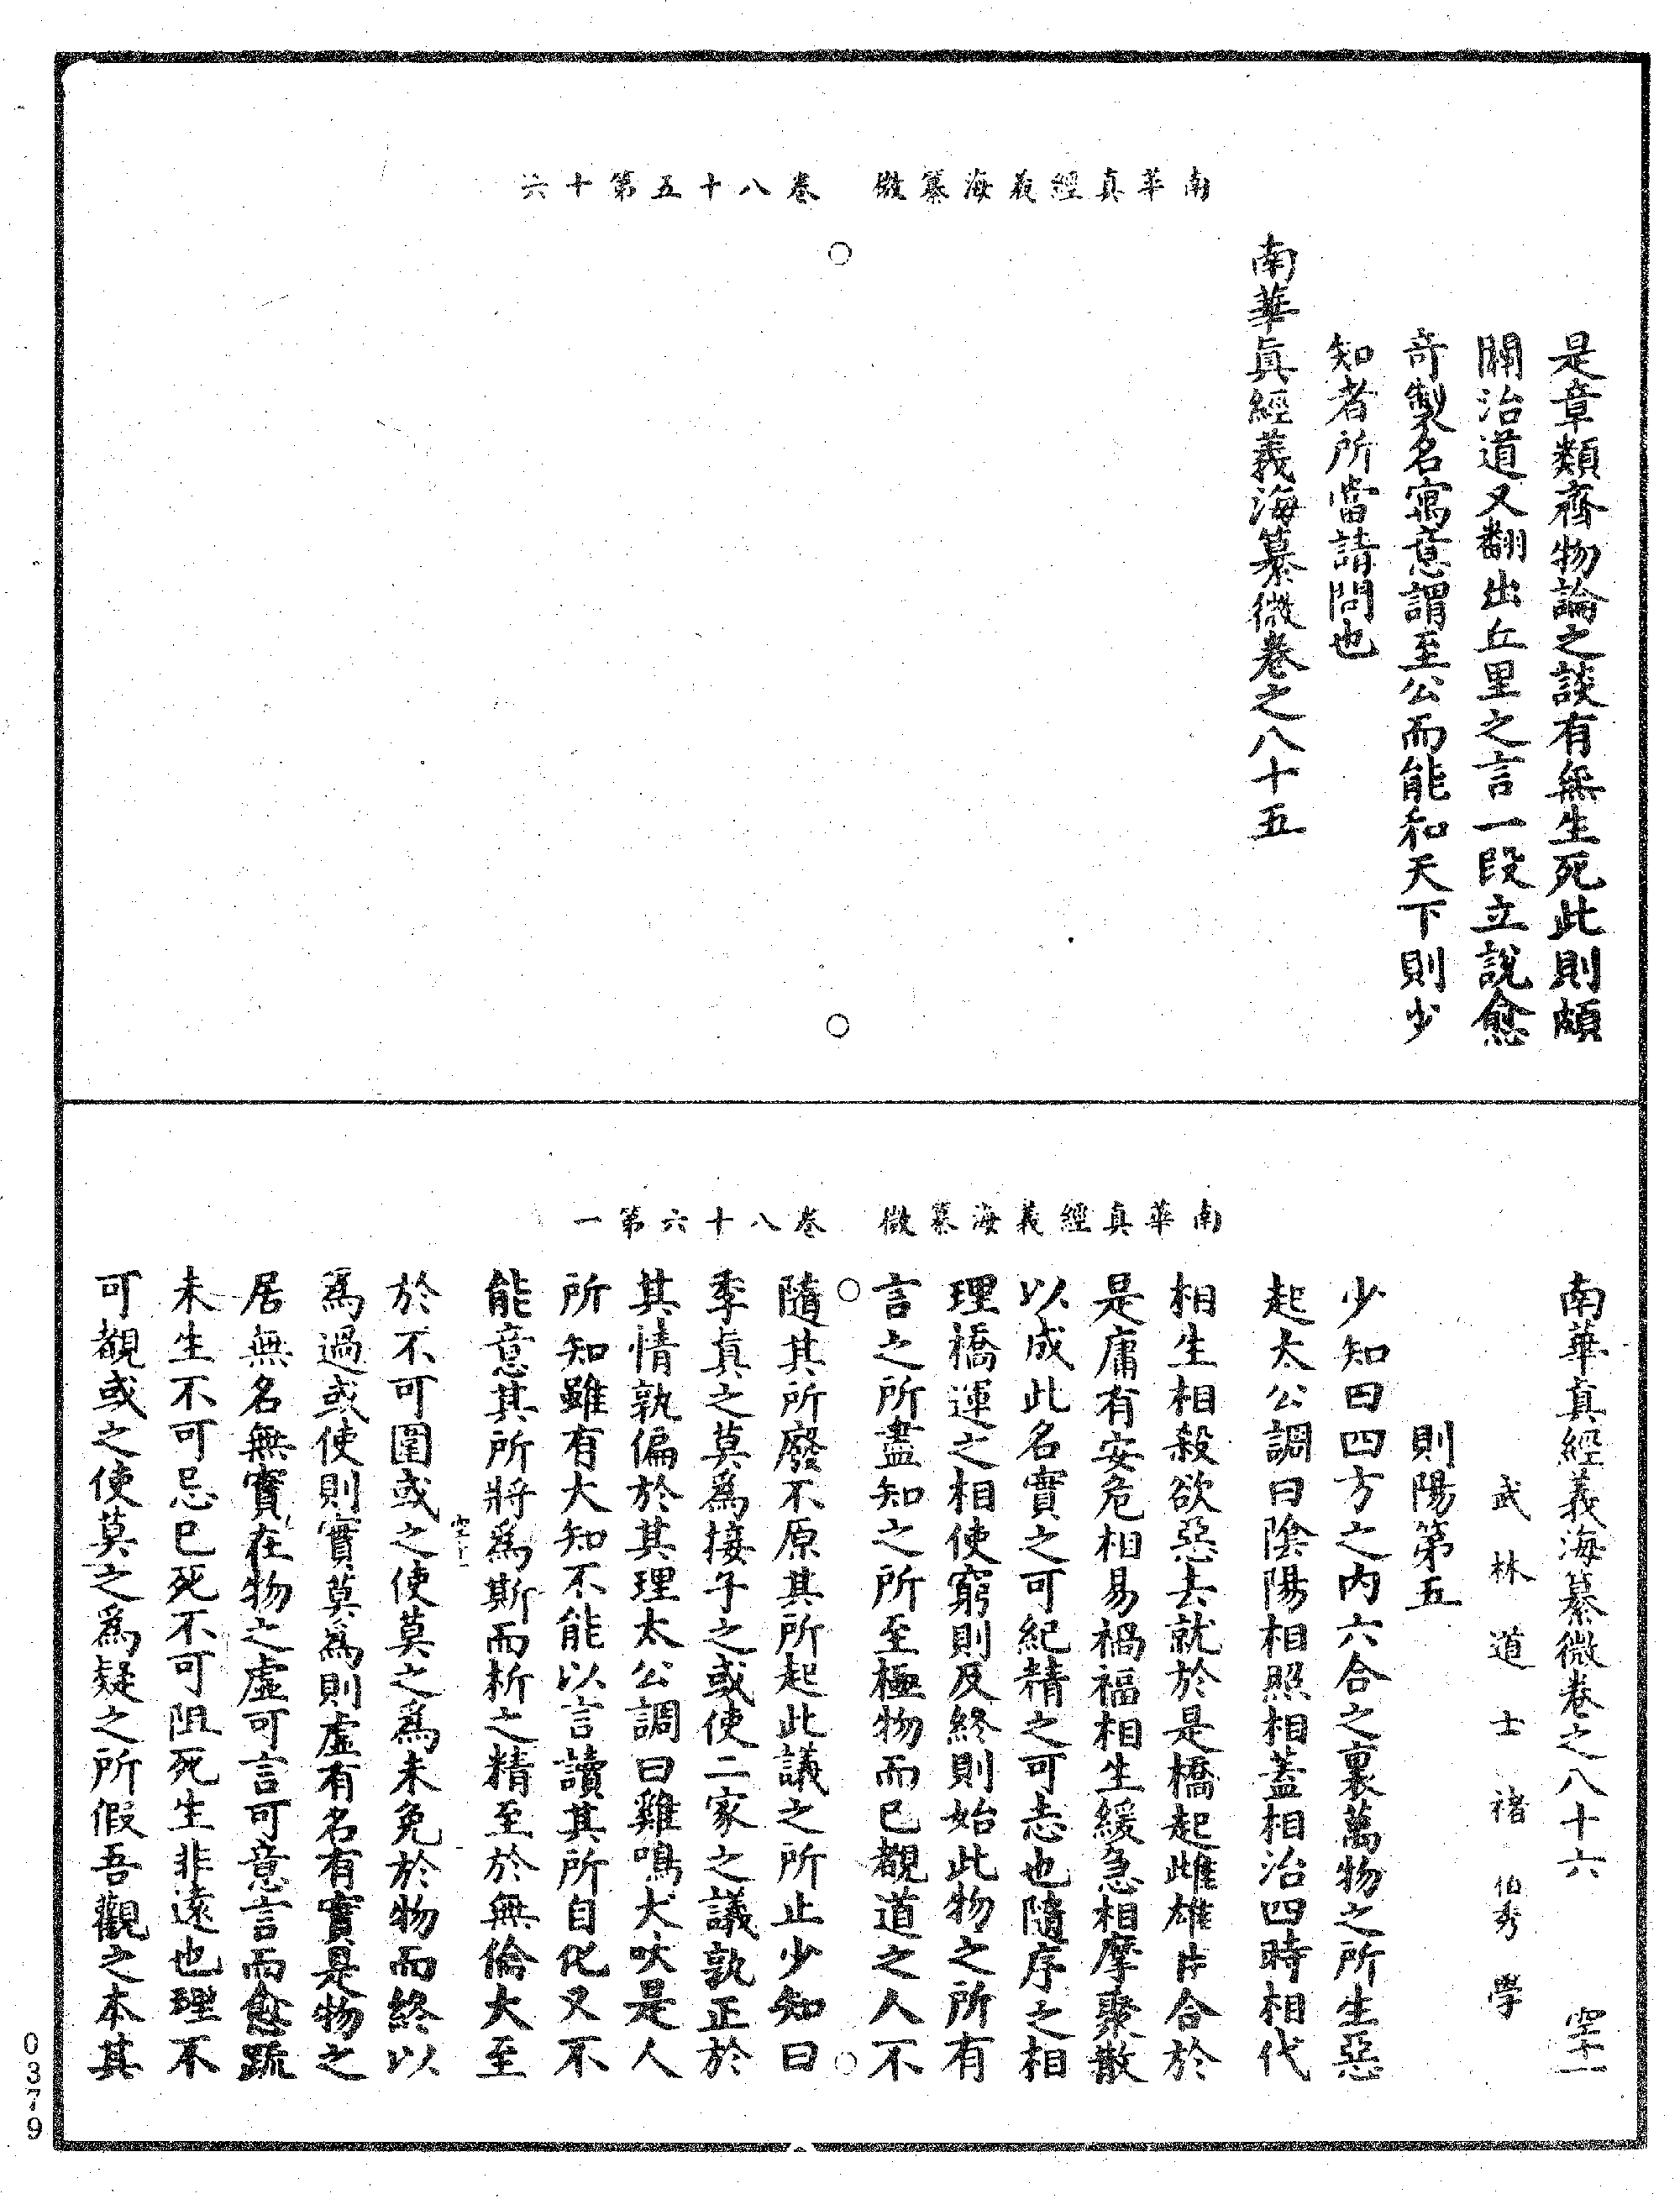 南華真經義海纂微　卷八十五第十六
是章類齊物論之談有無生死此則頗
關治道又翻出丘里之言一段立說愈
奇製名寓意謂至公而能和天下則少
知者所當請問也
南華真經義海纂微卷之八十五
南華真經義海纂微　卷八十六第一
南華真經義海纂微卷之八十六
武林道士褚伯秀學
則陽第五
少知曰四方之內六合之裏萬物之所生惡
起太公調曰陰陽相照相蓋相治四時相代
相生相殺欲惡去就於是橋起雌雄片合於
是庸有安危相易禍福相生緩急相摩聚散
以成此名實之可紀精之可志也隨序之相
理橋運之相使窮則反終則始此物之所有
言之所盡知之所至極物而已觀道之人不
隨其所廢不原其所起此議之所止少知曰
季真之莫為接子之或使二家之議孰正於
其情孰偏於其理太公調曰雞鳴犬吠是人
所知雖有大知不能以言讀其所自化又不
能意其所將為斯而析之精至於無倫大至
於不可圍或之使莫之為未免於物而終以
為過或使則實莫為則虛有名有實是物之
居無名無實在物之虛可言可意言而愈疏
未生不可忌已死不可阻死生非遠也理不
可觀或之使莫之為疑之所假吾觀之本其
0379